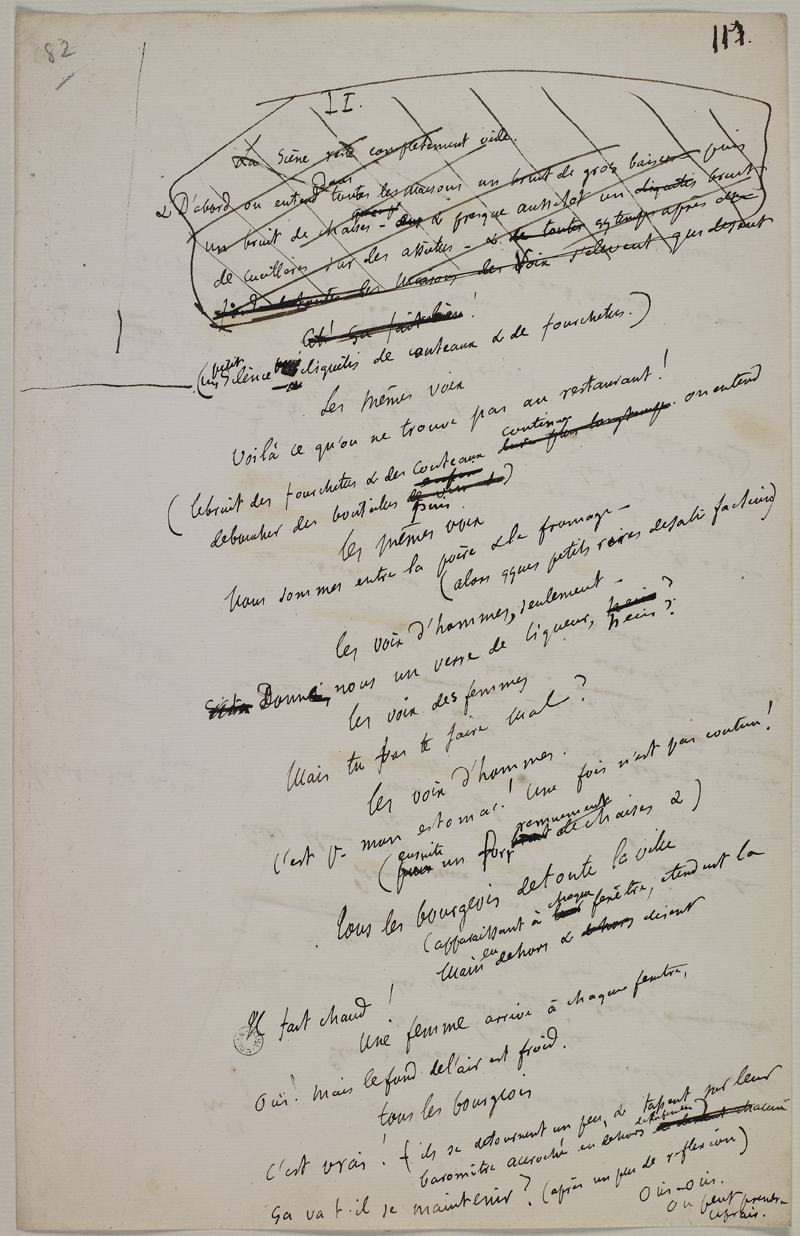 82
117.
II.
La scène reste complètement vide.
& D'abord on entend dans toutes les maisons un bruit de gros baisers puis
un bruit de chaises - & presque aussitôt un cliquetis bruit
de cuillères sur des assiettes - & de toutes après
toutes les maisons des Voix s'élèvent qui disent
Ah! ça fait bien!
(un petit silence puis cliquetis de couteaux & de fourchettes.)
Les mêmes voix
Voilà ce qu'on ne trouve pas au restaurant!
continue
(le bruit des fourchettes & des couteaux dure plus longtemps. on entend
déboucher des bouteilles puis)
les mêmes voix
Nous sommes entre la poire & le fromage -
(alors qques petits rires de satisfaction)
les voix d'hommes, seulement -
Donne, nous un verre de liqueur, hein?
hein?
les voix des femmes
Mais tu vas te faire mal?
les voix d'hommes.
C'est pr mon estomac! Une fois n'est pas coutume!
(ensuite un fort remuement de chaises &)
Tous les bourgeois de toute la ville
(apparaissant à chaque fenêtre, étendent la
main en dehors & dehors disent
Il fait chaud!
Une femme arrive à chaque fenêtre,
Oui! mais le fond de l'air est froid.
tous les bourgeois
C'est vrai! (ils se détournent un peu, & tapent sur leur
baromètre accroché en dehors & disent chacun
ça va t-il se maintenir? (après un peu de réflexion)
Oui-oui.
On peut prendre
le frais.